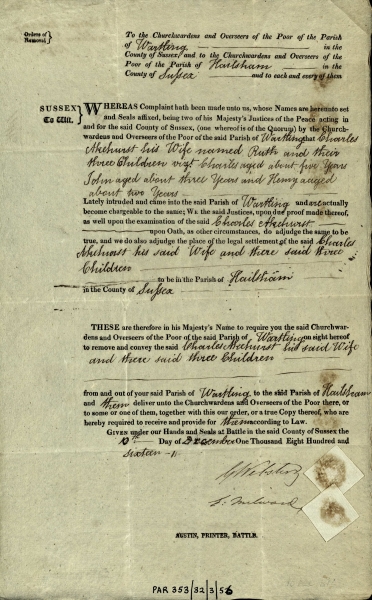 Orders of
Removal
To the Churchwardens and Overseers of the Poor of the Parish
of Wartling in the
County of Sussex, and to the Churchwardens and Overseers of the
Poor of the Parish of Hailsham in the
County of Sussex and to each and every of them
SUSSEX
To Wit.
WHEREAS Complaint hath been made unto us, whose Names are hereunto set
and Seals affixed, being two of his Majesty's Justices of the Peace acting in
and for the said County of Sussex, (one whereof is of the Quorum) by the Church-
wardens and Overseers of the Poor of the said Parish of Wartling that Charles
Akehurst his Wife named Ruth and their
three Children vizt Charles aged about five Years
John aged about three Years and Henry aged
about two Years
Lately intruded and came into the said Parish of Wartling and are actually
become chargeable to the same; We the said Justices, upon due proof made thereof,
as well upon the examination of the said Charles Akehurst
upon Oath, as other circumstances, do adjudge the same to be
true, and we do also adjudge the place of the legal settlement of the said Charles
Akehurst his said Wife and there said three
Children
to be in the Parish of Hailsham
in the County of Sussex
THESE are therefore in his Majesty's Name to require you the said Churchwar-
dens and Overseers of the Poor of the said Parish of Wartling on sight hereof
to remove and convey the said Charles Akehurst his said Wife
and there said three Children
from and out of your said Parish of Wartling to the said Parish of Hailsham
and them deliver unto the Churchwardens and Overseers of the Poor there, or
to some or one of them, together with this our order, or a true Copy thereof, who are
hereby required to receive and provide for them according to Law.
GIVEN under our Hands and Seals at Battle in the said County of Sussex the
Day of December One Thousand Eight Hundred and
sixteen
G Webster
Milward
AUSTIN, PRINTER, BATTLE.
PAR 353/32/3/56